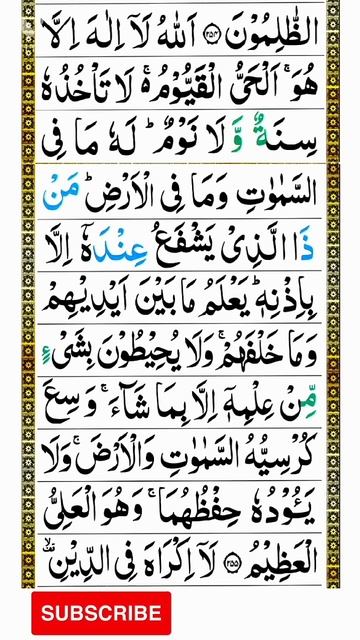 الظّٰلِمُوْنَ ﴿۲۵۴﴾ اَللّٰهُ لَاۤ اِلٰهَ اِلَّا
هُوَ ۚ اَلْحَیُّ الْقَیُّوْمُ ۬ۚ لَا تَاْخُذُهٗ
سِنَةٌ وَّ لَا نَوْمٌ ؕ لَهٗ مَا فِی
السَّمٰوٰتِ وَمَا فِی الْاَرْضِ ؕ مَنْ
ذَا الَّذِیْ یَشْفَعُ عِنْدَهٗۤ اِلَّا
بِاِذْنِهٖ ؕ یَعْلَمُ مَا بَیْنَ اَیْدِیْهِمْ
وَمَا خَلْفَهُمْ ۚ وَلَا یُحِیْطُوْنَ بِشَیْءٍ
مِّنْ عِلْمِهٖۤ اِلَّا بِمَا شَآءَ ۚ وَسِعَ
كُرْسِیُّهُ السَّمٰوٰتِ وَالْاَرْضَ ۚ وَلَا
یَـُٔوْدُهٗ حِفْظُهُمَا ۚ وَهُوَ الْعَلِیُّ
الْعَظِیْمُ ﴿۲۵۵﴾ لَاۤ اِكْرَاهَ فِی الدِّیْنِ ۙ۫
SUBSCRIBE